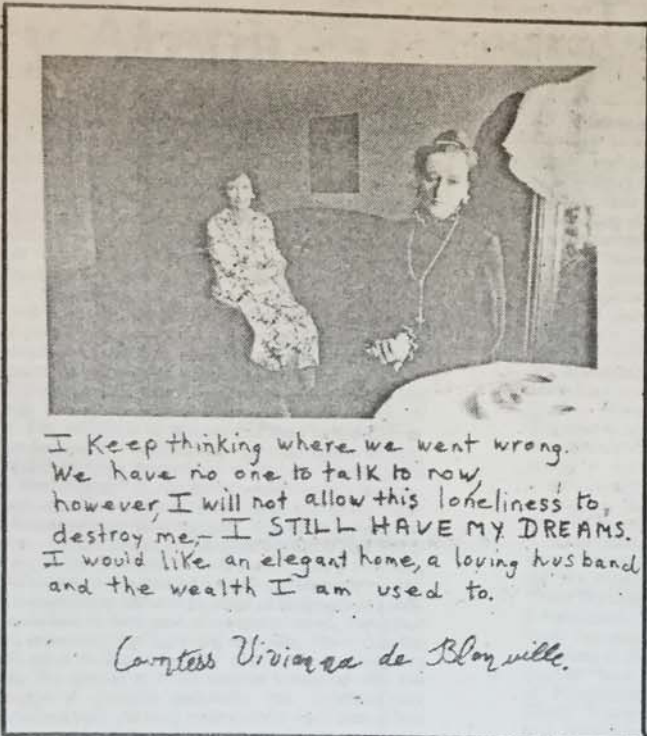 I Keep thinking where we went wrong.
We have no one to talk to now,
however, I will not allow this loneliness to,
destroy me,- I STILL HAVE MY DREAMS.
I would like an elegant home, a loving husband
and the wealth I am used to.
Countess Vivianna de Blonville.